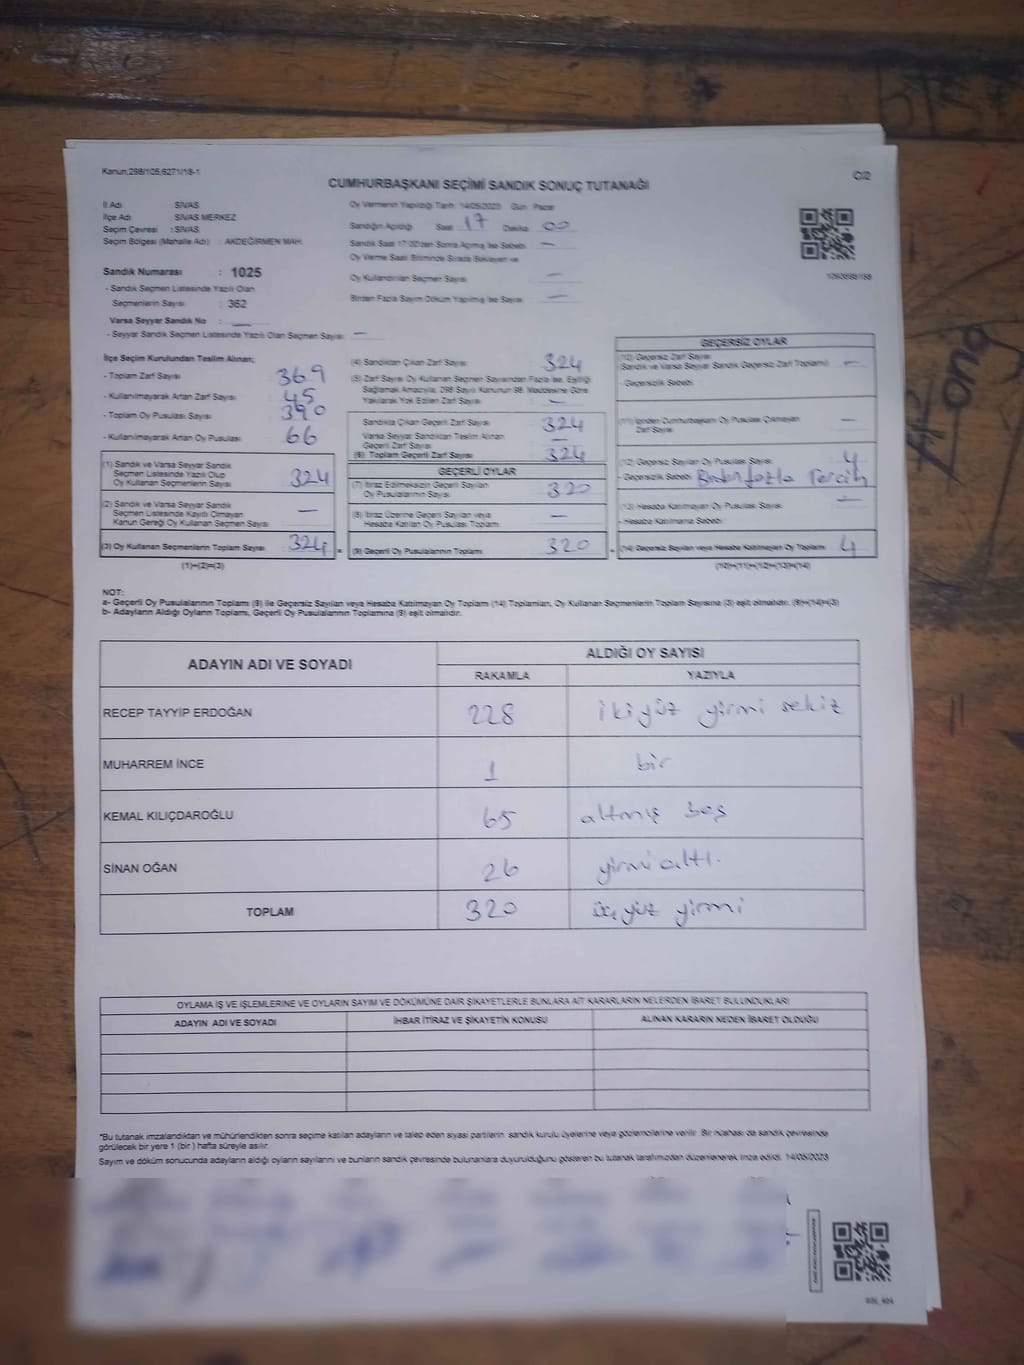 Kanun;298/105,6271/18-1
C/2
CUMHURBAŞKANI SEÇİMİ SANDIK SONUÇ TUTANAĞI
İl Adı : SİVAS
İlçe Adı : SİVAS MERKEZ
Seçim Çevresi : SİVAS
Seçim Bölgesi (Mahalle Adı) : AKDEĞİRMEN MAH.
Sandık Numarası : 1025
- Sandık Seçmen Listesinde Yazılı Olan
Seçmenlerin Sayısı : 362
Varsa Seyyar Sandık No : —
- Seyyar Sandık Seçmen Listesinde Yazılı Olan Seçmen Sayısı : —
Oy Vermenin Yapıldığı Tarih: 14/05/2023 Gün: Pazar
Sandığın Açıldığı Saat 17 Dakika 00
Sandık Saat 17:00'den Sonra Açılmış İse Sebebi —
Oy Verme Saati Bitiminde Sırada Bekleyen ve
Oy Kullandırılan Seçmen Sayısı —
Birden Fazla Sayım Döküm Yapılmış İse Sayısı —
İlçe Seçim Kurulundan Teslim Alınan;
- Toplam Zarf Sayısı 369
- Kullanılmayarak Artan Zarf Sayısı 45
- Toplam Oy Pusulası Sayısı 390
- Kullanılmayarak Artan Oy Pusulası 66
(1) Sandık ve Varsa Seyyar Sandık
Seçmen Listesinde Yazılı Olup
Oy Kullanan Seçmenlerin Sayısı 324
(2) Sandık ve Varsa Seyyar Sandık
Seçmen Listesinde Kayıtlı Olmayan
Kanun Gereği Oy Kullanan Seçmen Sayısı —
(3) Oy Kullanan Seçmenlerin Toplam Sayısı 324 =
(1)+(2)=(3)
(4) Sandıktan Çıkan Zarf Sayısı 324
(5) Zarf Sayısı Oy Kullanan Seçmen Sayısından Fazla İse, Eşitliği
Sağlamak Amacıyla, 298 Sayılı Kanunun 98. Maddesine Göre
Yakılarak Yok Edilen Zarf Sayısı —
Sandıkta Çıkan Geçerli Zarf Sayısı 324
Varsa Seyyar Sandıktan Teslim Alınan
Geçerli Zarf Sayısı —
(6) Toplam Geçerli Zarf Sayısı 324
GEÇERLİ OYLAR
(7) İtiraz Edilmeksizin Geçerli Sayılan
Oy Pusulalarının Sayısı 320
(8) İtiraz Üzerine Geçerli Sayılan veya
Hesaba Katılan Oy Pusulası Toplamı —
(9) Geçerli Oy Pusulalarının Toplamı 320
GEÇERSİZ OYLAR
(10) Geçersiz Zarf Sayısı
(Sandık ve Varsa Seyyar Sandık Geçersiz Zarf Toplamı) —
- Geçersizlik Sebebi
(11) İçinden Cumhurbaşkanı Oy Pusulası Çıkmayan
Zarf Sayısı —
(12) Geçersiz Sayılan Oy Pusulası Sayısı 4
- Geçersizlik Sebebi Birden fazla Tercih
(13) Hesaba Katılmayan Oy Pusulası Sayısı —
- Hesaba Katılmama Sebebi
(14) Geçersiz Sayılan veya Hesaba Katılmayan Oy Toplamı 4
(10)+(11)+(12)+(13)=(14)
NOT:
a- Geçerli Oy Pusulalarının Toplamı (9) ile Geçersiz Sayılan veya Hesaba Katılmayan Oy Toplamı (14) Toplamları, Oy Kullanan Seçmenlerin Toplam Sayısına (3) eşit olmalıdır. (9)+(14)=(3)
b- Adayların Aldığı Oyların Toplamı, Geçerli Oy Pusulalarının Toplamına (9) eşit olmalıdır.
ADAYIN ADI VE SOYADI
ALDIĞI OY SAYISI
RAKAMLA YAZIYLA
RECEP TAYYİP ERDOĞAN 228 iki yüz yirmi sekiz
MUHARREM İNCE 1 bir
KEMAL KILIÇDAROĞLU 65 altmış beş
SİNAN OĞAN 26 yirmi altı.
TOPLAM 320 üç yüz yirmi
OYLAMA İŞ VE İŞLEMLERİNE VE OYLARIN SAYIM VE DÖKÜMÜNE DAİR ŞİKAYETLERLE BUNLARA AİT KARARLARIN NELERDEN İBARET BULUNDUKLARI
ADAYIN ADI VE SOYADI
İHBAR İTİRAZ VE ŞİKAYETİN KONUSU
ALINAN KARARIN NEDEN İBARET OLDUĞU
*Bu tutanak imzalandıktan ve mühürlendikten sonra seçime katılan adayların ve talep eden siyasi partilerin sandık kurulu üyelerine veya gözlemcilerine verilir. Bir nüshası da sandık çevresinde
görülecek bir yere 1 (bir) hafta süreyle asılır.
Sayım ve döküm sonucunda adayların aldığı oyların sayılarını ve bunların sandık çevresinde bulunanlara duyurulduğunu gösteren bu tutanak tarafımızdan düzenlenerek imza edildi. 14/05/2023